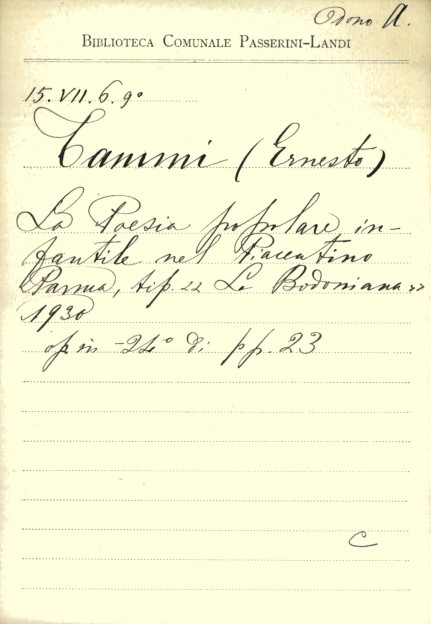 Dono A.
BIBLIOTECA COMUNALE PASSERINI-LANDI
15.VII.6.9º
Tammi (Ernesto)
La Poesia popolare in-
fantile nel Piacentino
Parma, tip. "La Bodoniana"
1930
op in -24º di pp. 23
C